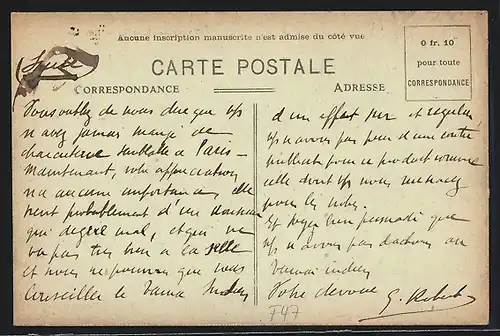 (Suite)
Aucune inscription manuscrite n'est admise du côté vue
CARTE POSTALE
CORRESPONDANCE
ADRESSE
0 fr. 10
pour toute
CORRESPONDANCE
Vous oubliez de nous dire que
n'avez jamais mangé de
charcuterie à Paris —
Maintenant, votre appréciation
n'a aucune importance, elle
vient probablement d'un Monsieur
qui digère mal, et qui ne
va pas très bien à la selle
et nous ne pouvons que vous
conseiller le Tamar Indien
d'un effet sur et régulier
n'avons pas peur d'une contre
pour ce produit comme
celle dont nous menacez
pour les notres.
Et soyez bien persuadé que
n'avons pas d'actions au
Tamar indien
Votre dévoué G. Robert
747